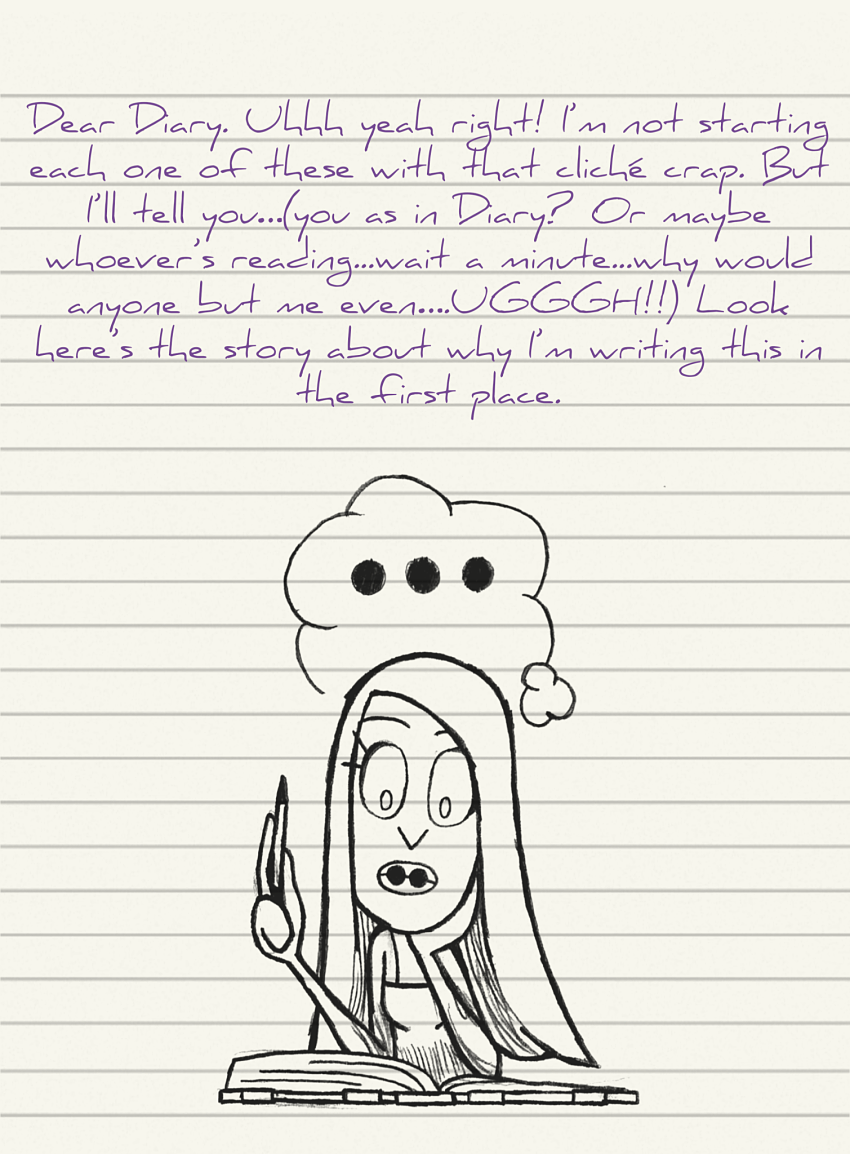 Dear Diary. Uhhh yeah right! I'm not starting
each one of these with that cliché crap. But
I'll tell you...(you as in Diary? Or maybe
whoever's reading...wait a minute...why would
anyone but me even....UGGGH!!) Look
here's the story about why I'm writing this in
the first place.